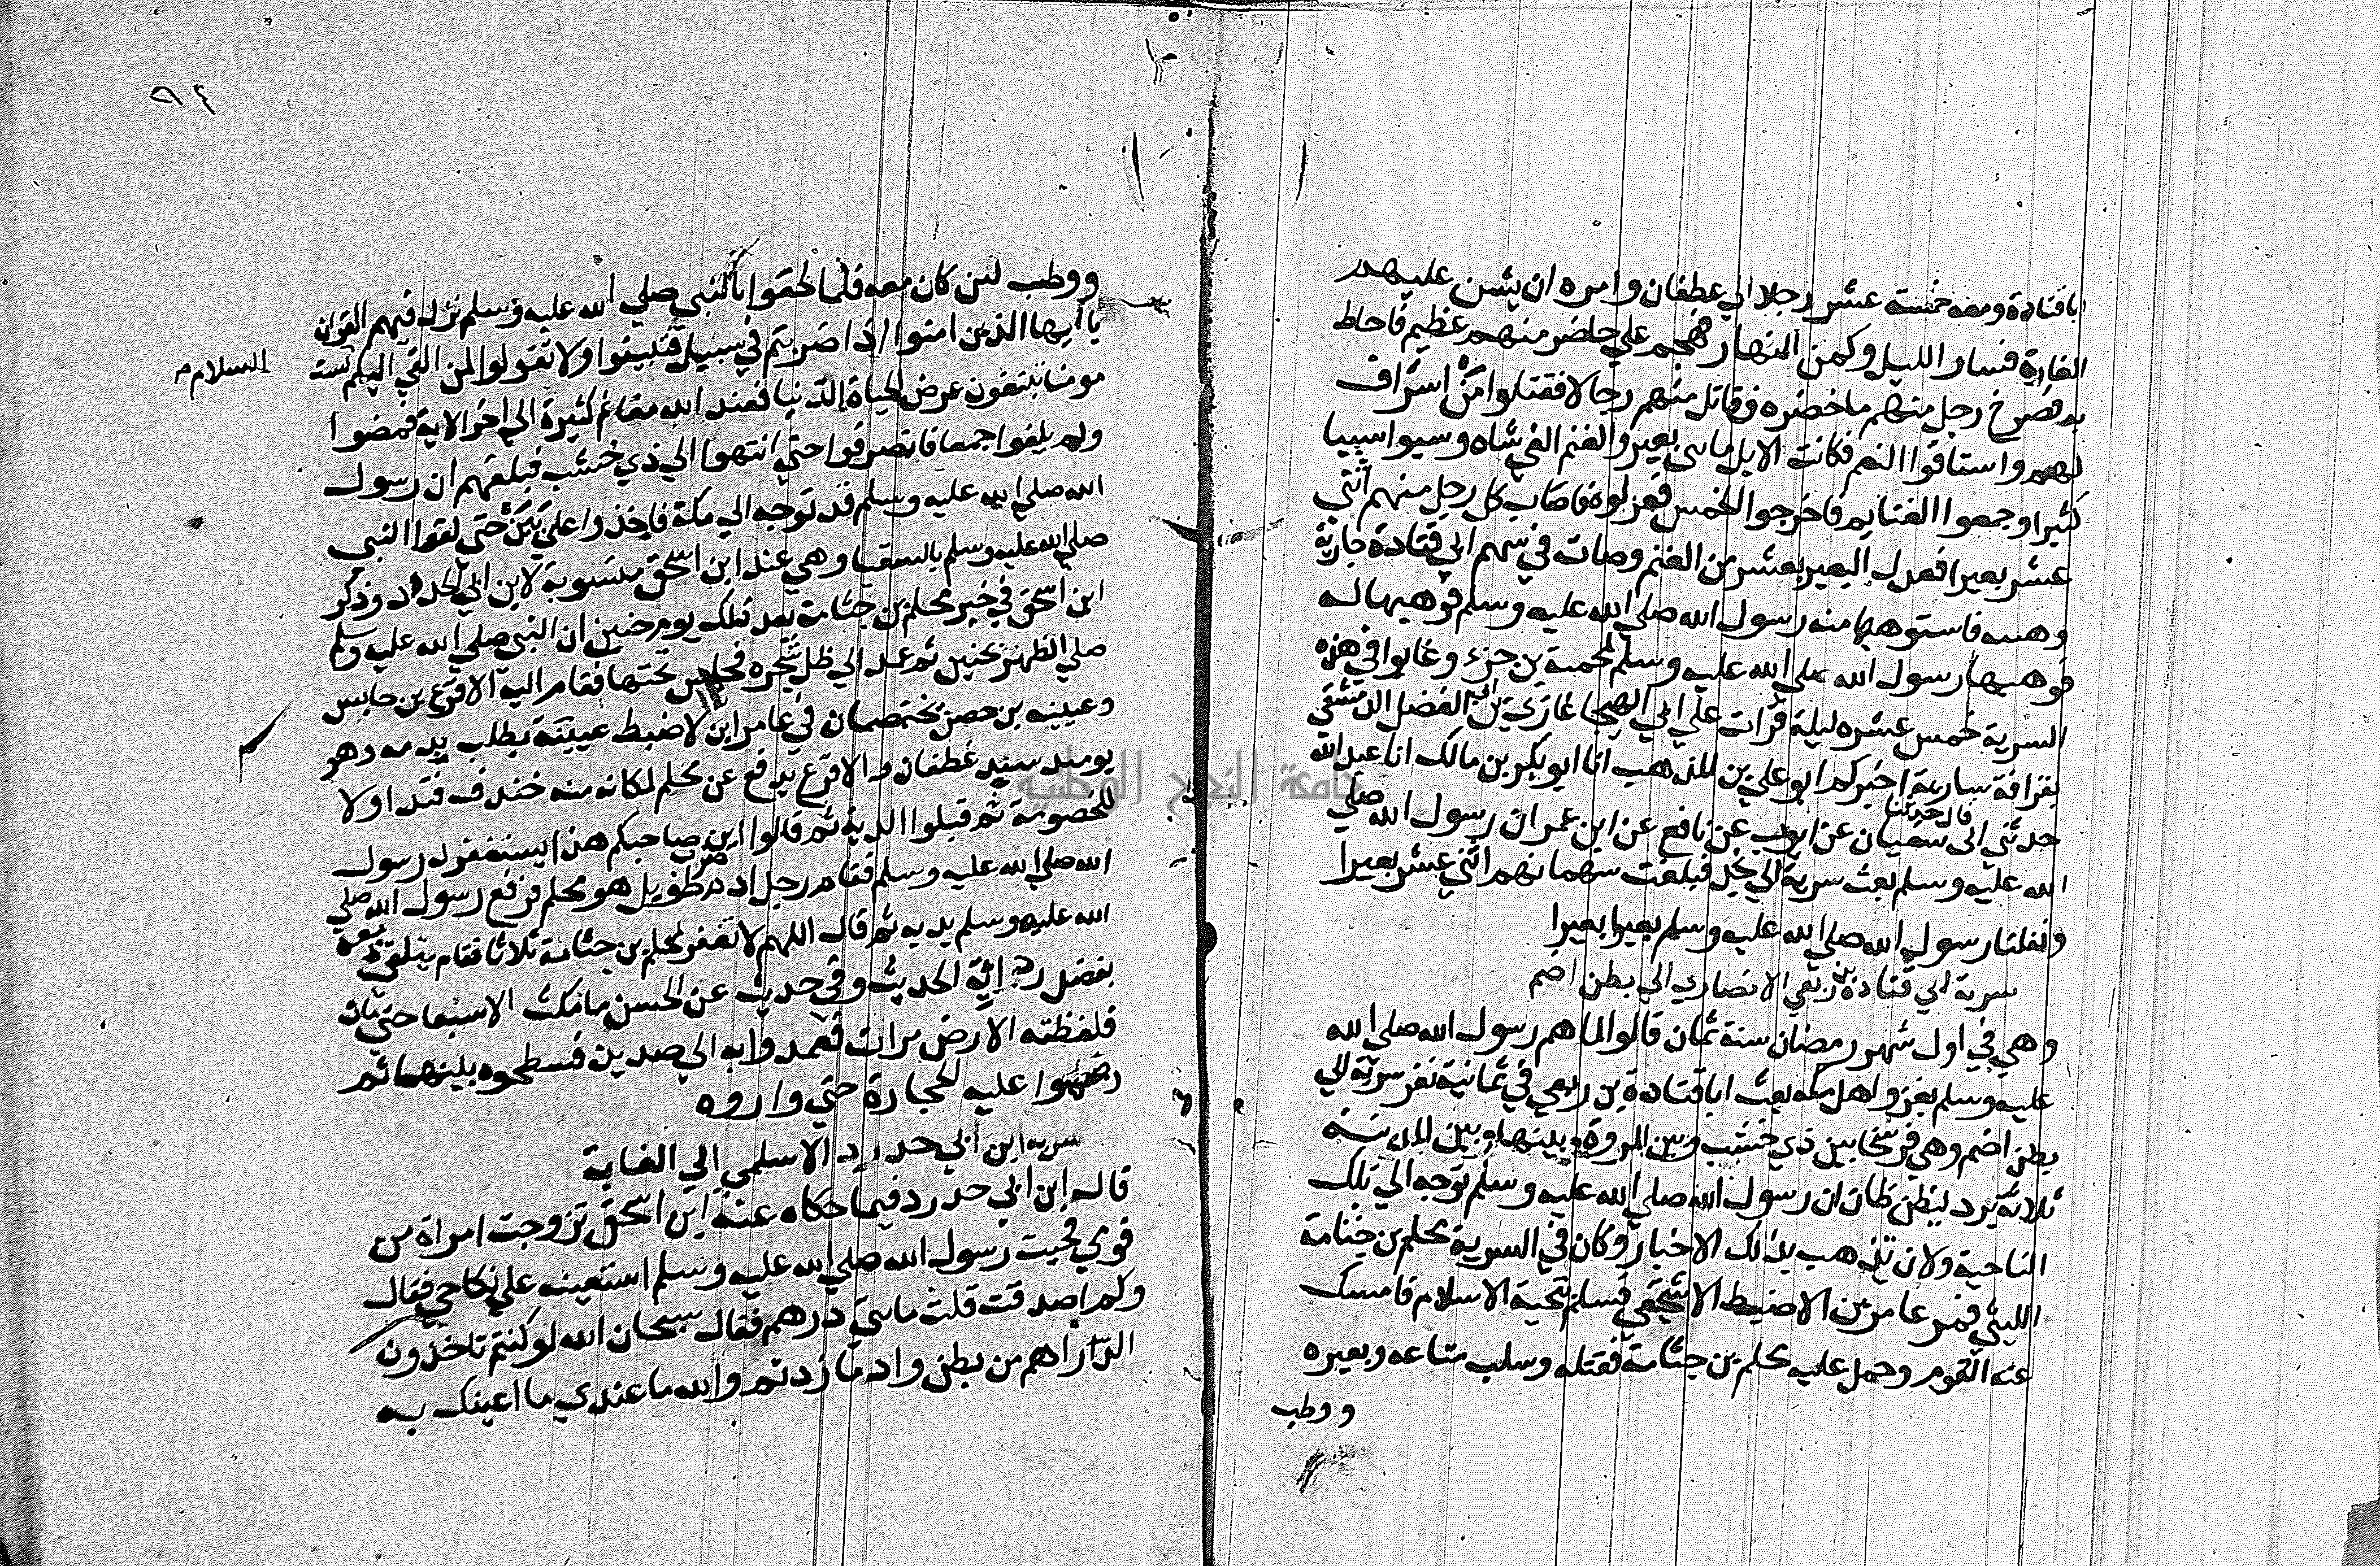 ابا قتادة ومعه خمسة عشر رجلا الي غطفان وامره ان يشن عليهم
الغارة فسار الليل وكمن النهار فهجم علي حاضر منهم عظيم فاحاط
به فصرخ رجل منهم ما خضره وقاتل منهم رجالا فقتلوا من اشراف
لهم واستاقوا النعم فكانت الابل ماىى بعير والغنم الفي شاه وسبوا سبيا
كثيرا وجمعوا الغنايم فاخرجوا الخمس فعزلوه فاصاب كل رجل منهم اثني
عشر بعيرا فعدل البعير بعشر من الغنم وصات في سهم ابي قتادة جارية
وهسه فاستوهبها منه رسول الله صلي الله عليه وسلم فوهبها له
فوهبها رسول الله صلي الله عليه وسلم لمحمية بن جزء وغابوا في هذه
السرية خمس عشره ليلة قرات علي ابي الهيجا غازي بن ابي الفضل الدمشقي
بقرافة سارية اخبركم ابو علي بن المذهب انا ابو بكر بن مالك انا عبد الله
حدثني ابي قال حدثنا سفيان عن ايوب عن نافع عن ابن عمر ان رسول الله صلي
الله عليه وسلم بعث سرية الي نجد فبلغت سهمانهم اثني عشر بعيرا
ونفلنا رسول الله صلي الله عليه وسلم بعيرا بعيرا
سرية ابي قتادة بن ربعي الانصاري الي بطن اضم
وهي في اول شهر رمضان سنة ثمان قالوا لما هم رسول الله صلي الله
عليه وسلم بغزو اهل مكه بعث ابا قتادة بن ربعي في ثمانية نفر سرية الي
بطن اضم وهي فرسخا بين ذي خشب وبين المروة وبينها وبين المدينة
ثلاثة برد ليظن ظان ان رسول الله صلي الله عليه وسلم توجه الي تلك
الناحية ولان تذهب بذلك الاخبار وكان في السرية محلم بن جثامة
الليثي فمر عامر بن الاضبط الاشجعي فسلم بتحية الاسلام فامسك
عنه القوم وحمل عليه محلم بن جثامة فقتله وسلب متاعه وبعيره
ووطب
٩٤
ووطب لبن كان معه فلما لحقوا بالنبي صلي الله عليه وسلم نزل فيهم القران
يا ايها الذين امنوا اذا ضربتم في سبيل فتبينوا ولا تقولوا لمن القي اليكم السلام لست
مومنا تبتغون عرض الحياة الدنيا فعند الله مغانم كثيرة الي اخر الاية فمضوا
ولم يلقوا جمعا فانصرفوا حتي انتهوا الي ذي خشب فبلغهم ان رسول
الله صلي الله عليه وسلم قد توجه الي مكة فاخذوا علي يين حتي لقوا النبي
صلي الله عليه وسلم بالسقيا وهي عند ابن اسحق منسوبة لابن ابي حدرد وذكر
ابن اسحق في خبر محلم بن جثامة بعد ذلك يوم حنين ان النبي صلي الله عليه وسلم
صلي الظهر بحنين ثم عمد الي ظل شجره فجلس تحتها فقام اليه الاقرع بن حابس
وعيينه بن حصن يختصمان في عامر ابن الاضبط عيينة يطلب بدمه وهو
يوميذ سيد غطفان والاقرع يدفع عن محلم لمكانه منه خندف فتداولا
الخصومة ثم قبلوا الدية ثم قالوا اين صاحبكم هذا يستغفر له رسول
الله صلي الله عليه وسلم فقام رجل ادم ضرب طويل هو محلم فرفع رسول الله صلي
الله عليه وسلم يديه ثم قال اللهم لا تغفر لمحلم بن جثامة ثلاثا فقام يتلقي دمعه
بفضل ردائه الحديث وفي حديث عن الحسن ما مكث الا سبعا حتي مات
فلفظته الارض مرات فعمدوا به الي صدين فسطحوه بينهما ثم
رضموا عليه الحجارة حتي واروه
سرية ابن ابي حدرد الاسلمي الي الغابة
قال ابن ابي حدرد فيما حكاه عنه ابن اسحق تزوجت امراة من
قومي فجيت رسول الله صلي الله عليه وسلم استعينه علي نكاحي فقال
وكم اصدقت قلت مايتي درهم فقال سبحان الله لو كنتم تاخذون
الدراهم من بطن واد ما زدتم والله ما عندي ما اعينك به
جامعة النجاح الوطنية